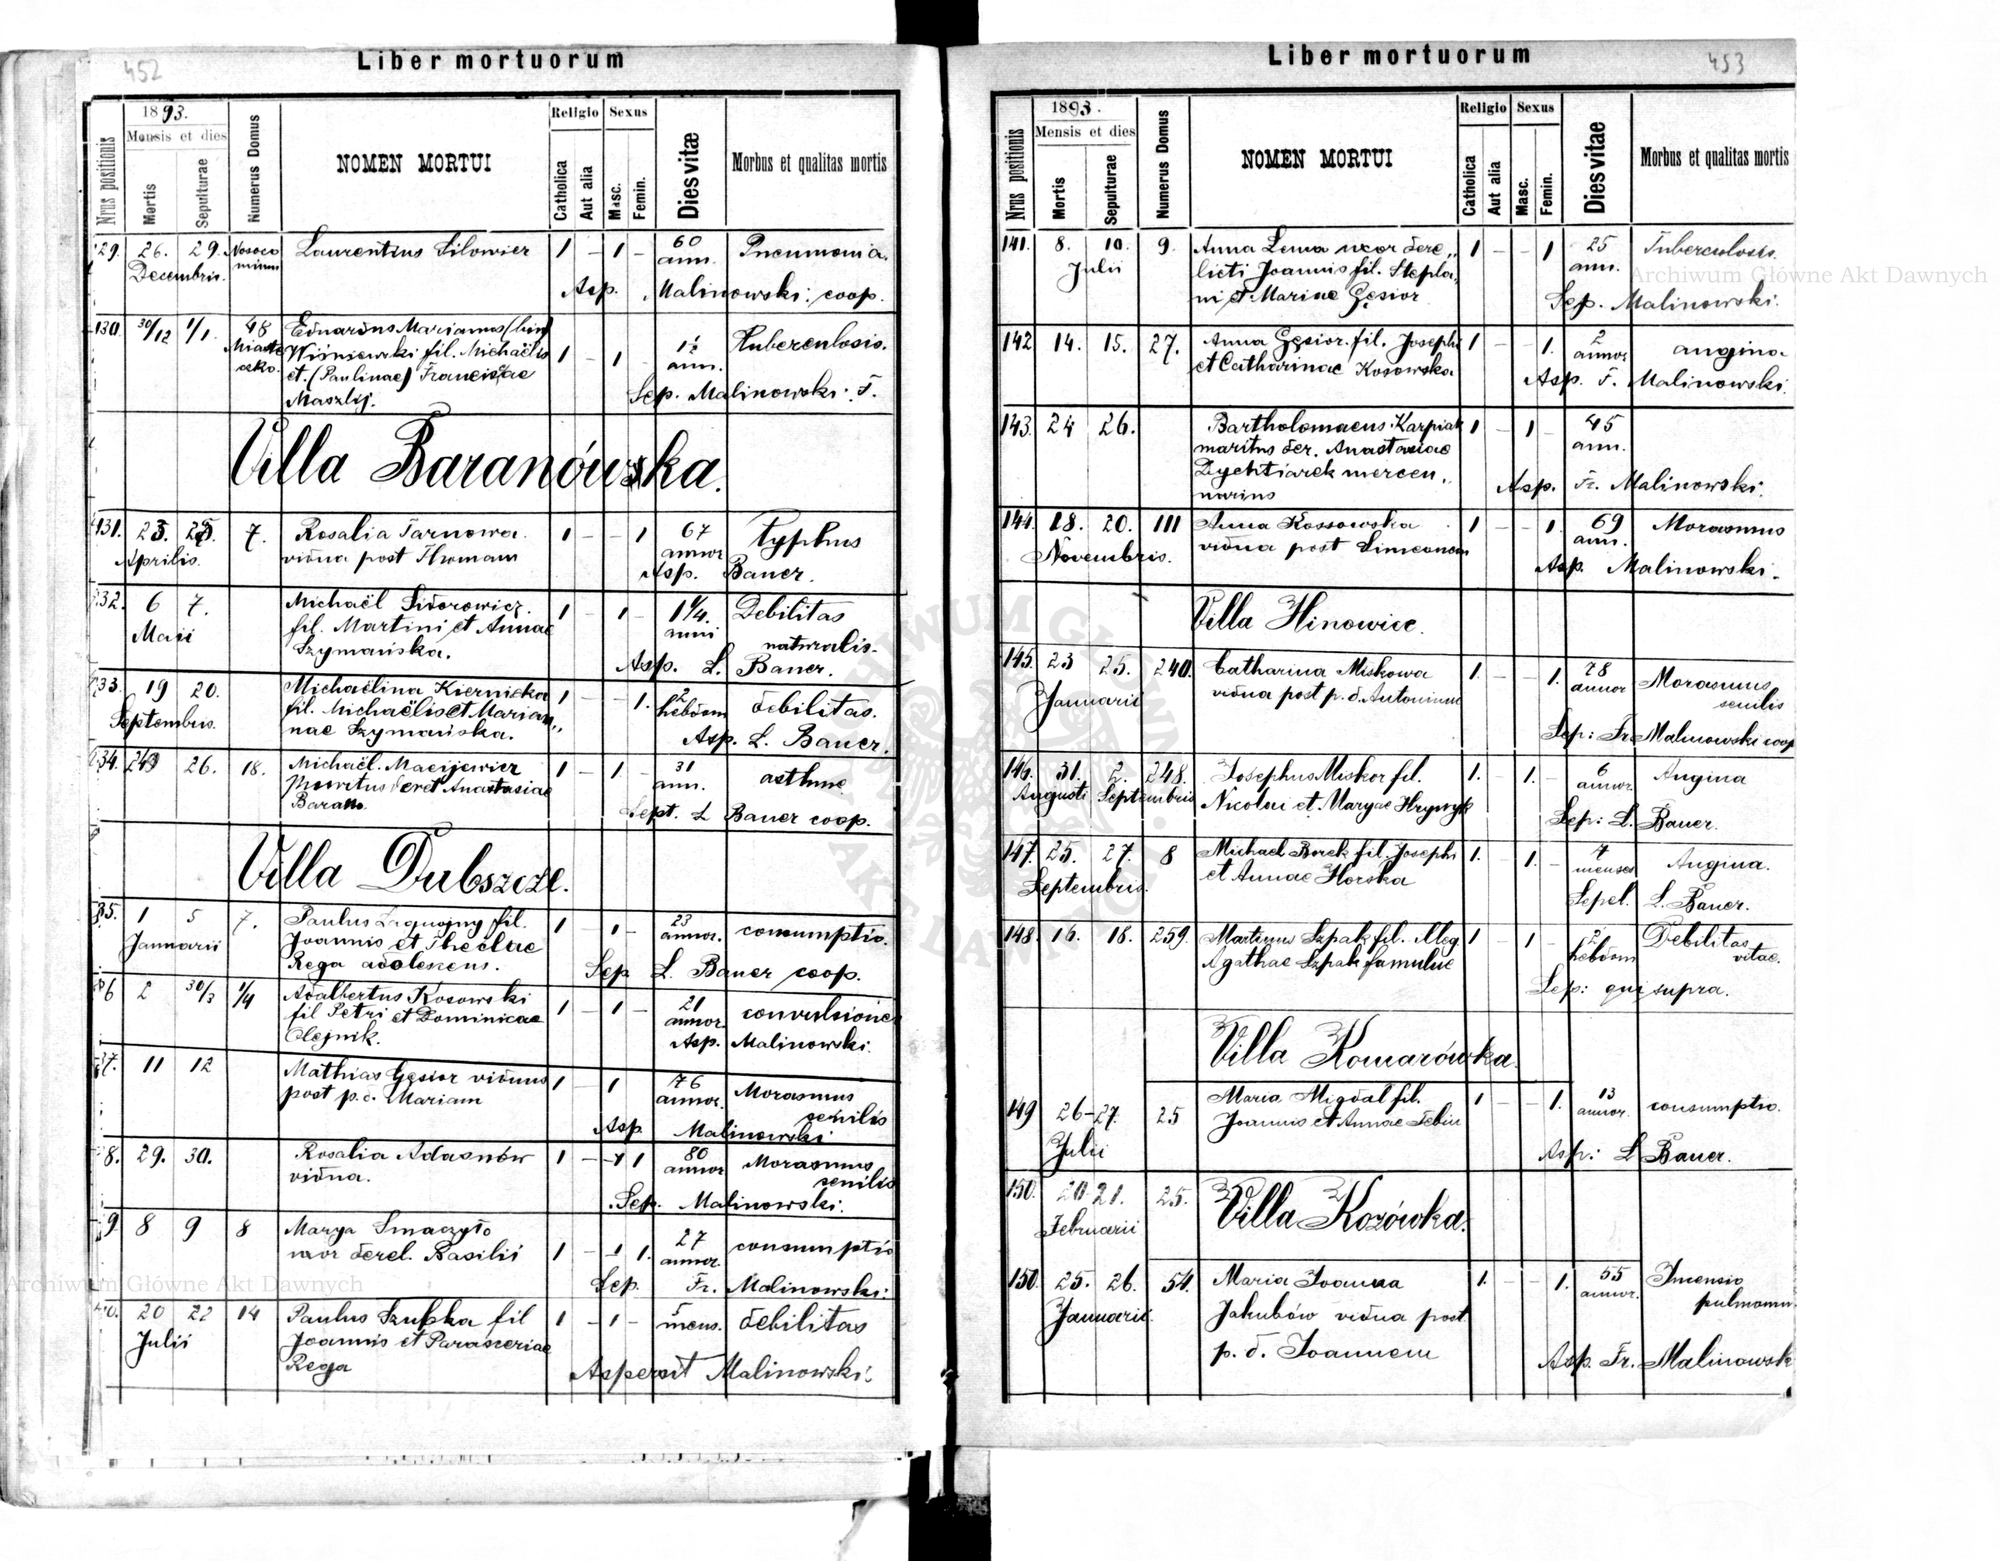 452
Liber mortuorum
1893.
Mensis et dies
Nrus positionis
Mortis
Sepulturae
Numerus Domus
NOMEN MORTUI
Religio
Catholica
Aut alia
Sexus
Masc.
Femin.
Dies vitæ
Morbus et qualitas mortis
129. 26. 29. Nosoco Laurentius Silowier 1 – 1 – 60 Pneumonia.
Decembris. minum ann.
Asp. Malinowski: coop.
130. 30/12 1/1. 48 Eduardus Marianus (bin)
Miaste Wiśniewski fil. Michaëlis 1 – 1 1½ Tuberculosis.
czko. et (Paulinae) Franciscae ann.
Maszlij. Sep. Malinowski: F.
Villa Baranówska.
131. 23. 25. 7. Rosalia Tarnowa 1 – – 1 67 Typhus
Aprilis. vidua post Thomam annor
Asp. Bauer.
132. 6 7. Michaël Sidorowicz. 1 – 1 – 1¼. Debilitas
Maii fil. Martini et Annae anni naturalis.
Szymańska. Asp. L. Bauer.
133. 19 20. Michaëlina Kiernicka 1 – – 1. 2 debilitas.
Septembris. fil. Michaëlis et Marian„ hebdom
nae Szymańska. Asp. L. Bauer.
134. 26. 18. Michaël Macijewicz 1 – 1 – 31 asthme
Maritus der et Anastasiae ann.
Baran Sept. L Bauer coop.
Villa Dubszcze.
135. 1 5 7. Paulus fil. 1 1 – 23 consumptio.
Januarii Joannis et Theclae annor.
Rega adolescens. Sep L. Bauer coop.
136 2 30/3 1/4 Adalbertus Kosowski 1 – 1 – 21 convulsiones
fil Petri et Dominicae annor.
Olejnik. Asp. Malinowski.
137. 11 12 Mathias Gęsior viduus 1 – 1 76 Morasmus
post p. d. Mariam annor. senilis
Asp. Malinowski
138. 29. 30. Rosalia Adasnów 1 – – 1 80 Morasmus
vidua. annor senilis
Sep. Malinowski.
139. 8 9 8 Marya Smaczyło 27 consumptio
uxor derel. Basilii 1 – 1. annor.
Sep. Fr. Malinowski:
140. 20 22 14 Paulus Szupka fil 1 – 1 – 5 debilitas
Julii Joannis et Parasceviae mens.
Rega Asperavit Malinowski:
453
Liber mortuorum
1893.
Mensis et dies
Nrus positionis
Mortis
Sepulturae
Numerus Domus
NOMEN MORTUI
Religio
Catholica
Aut alia
Sexus
Masc.
Femin.
Dies vitæ
Morbus et qualitas mortis
141. 8. 10. 9. Anna Lewa uxor dere„ 1 – – 1 25 Tuberculosis.
Julii licti Joannis fil. Stepha„ ann.
ni et Mariae Gęsior Sep. Malinowski.
142 14. 15. 27. Anna Gęsior. fil. Josephi 1 – – 1. 2 angina
et Catharinae Kosowska annor
Asp. F. Malinowski.
143. 24 26. Bartholomaeus Karpiak 1 – 1 – 45
maritus der. Anastasiae ann.
Dychtiarek mercen„ Asp. Fr. Malinowski.
narius
144. 18. 20. 111 Anna Kossowska 1 – – 1. 69 Morasmus
Novembris. vidua post Simeonem ann.
Asp. Malinowski.
Villa Hinowice.
145. 23 25. 240. Catharina Miskowa 1. – – 1. 78 Morasmus
Januarii vidua post p. d. Antonium annor senilis
Sep: Fr. Malinowski coop
146. 31. 2. 248. Josephus Miskor fil. 1. – 1. – 6 Angina
Augusti Septembris Nicolai et Maryae Hrynyk annor.
Sep: L. Bauer.
147. 25. 27. 8 Michael Borek fil. Josephi 1. – 1. – 4 Angina.
Septembris. et Annae Horska menses
Sepel. L. Bauer.
148. 16. 18. 259. Martinus Szpak fil. illeg. 1 – 1 – 2 Debilitas
Agathae Szpak famulae hebdom vitae.
Sep: qui supra.
Villa Komarówka.
149 26–27. 25 Maria Migdal fil. 1 – – 1. 13 consumptio.
Julii Joannis et Annae annor.
Asp: L Bauer.
150. 20 21. 25. Villa Kozówka.
Februarii
150. 25. 26. 54. Maria Joanna 1. – – 1. 55 Incensio
Januarii. Jakubów vidua post annor. pulmonu
p. d. Joannem Asp. Fr. Malinowsk
Archiwum Główne Akt Dawnych
Archiwum Główne Akt Dawnych
ARCHIWUM GŁÓWNE AKT DAWNYCH